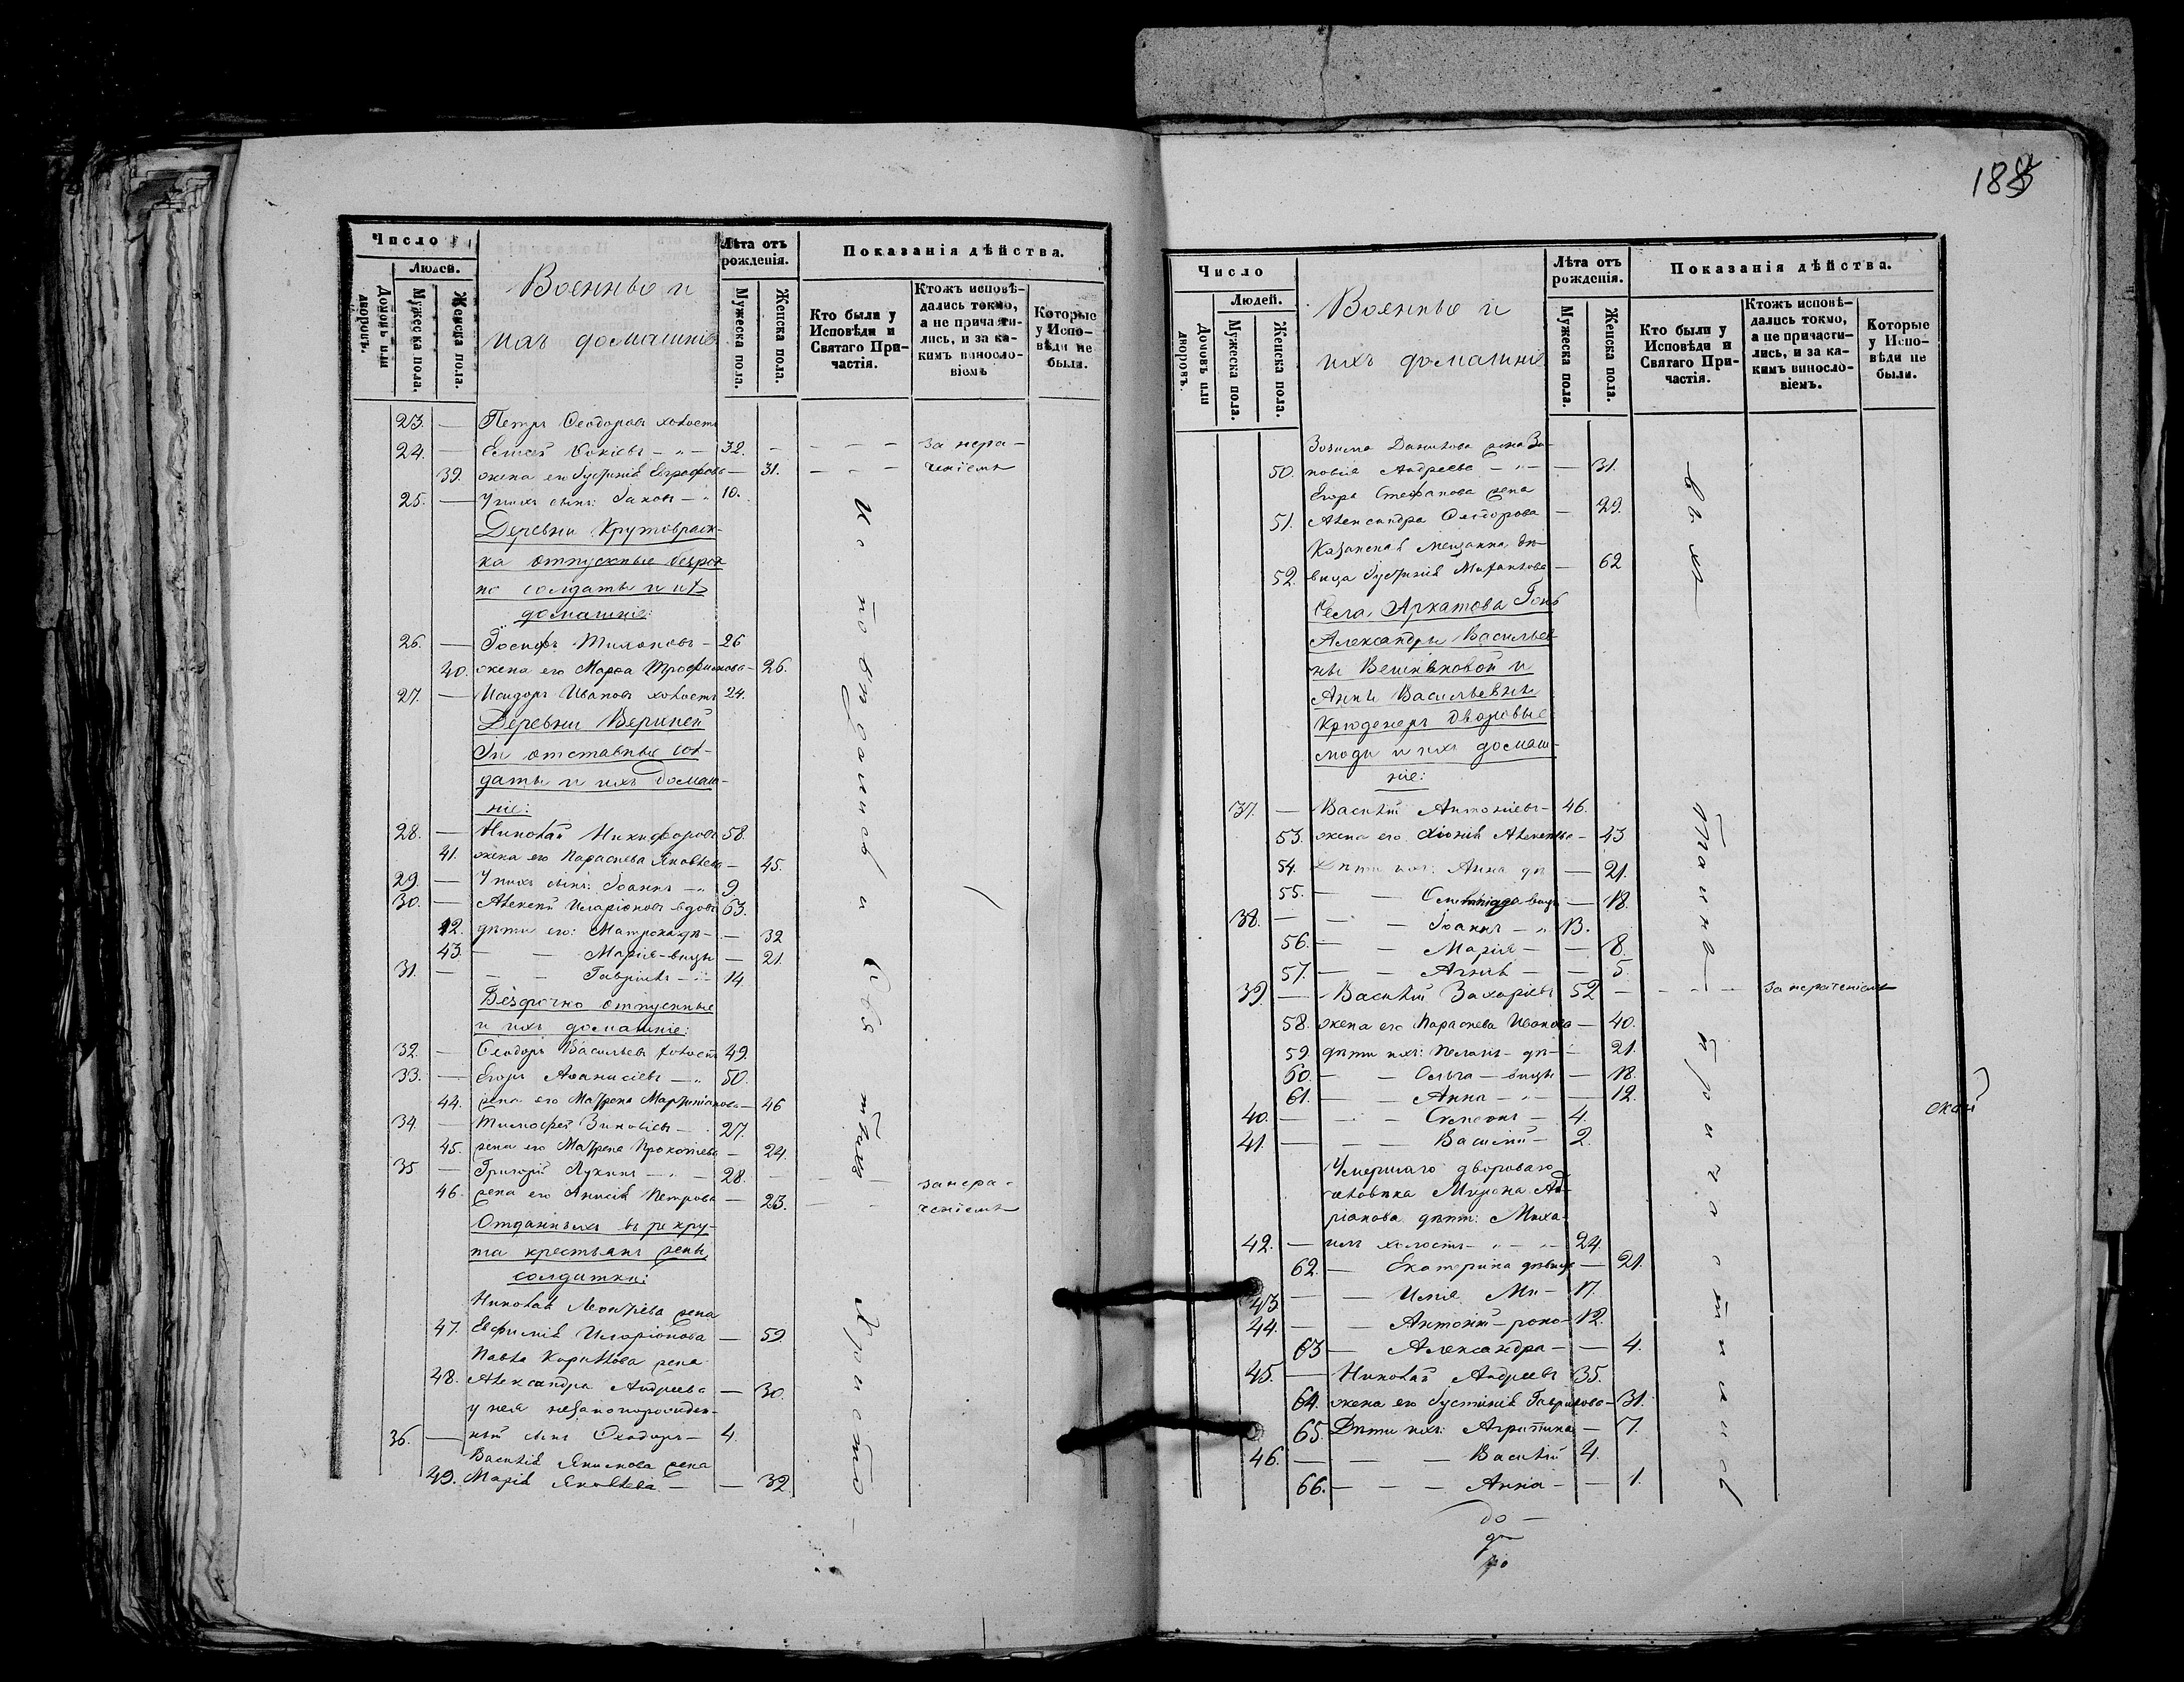 Число
Людей.
Домовъ или дворовъ.
Мужеска пола.
Женска пола.
Военные и
ихъ домашніе
Лѣта отъ рожденія.
Мужеска пола.
Женска пола.
Показанія дѣйства.
Кто были у Исповѣди и Святаго Причастія.
Ктожъ исповѣ-
дались токмо,
а не причасти-
лись, и за ка-
кимъ винosло-
віемъ
Которые
у Испо-
вѣди не
были.
23. — Петръ Ѳеодоровъ холостъ
24. — Елисей Фокіевъ — „ — 32. - - - - за нера-
39. жена его Іустинія Евграфова — 31. - - - ченіемъ
25. — У нихъ сынъ: Іаковъ — „ 10.
Деревни Крутовраж-
ка отпускные безроч-
но солдаты и ихъ
домашніе:
26. — Іосифъ Тихоновъ — 26
40. жена его Марѳа Трофимова — 26.
27. — Исидоръ Ивановъ холостъ 24.
Деревни Верхней
отставные сол-
даты и ихъ домаш-
ніе:
28. — Николай Никифоровъ 58.
41. жена его Параскева Яковлева — 45.
29. — У нихъ сынъ: Іоаннъ — „ 9.
30. — Алексій Иларіоновъ вдовъ 63.
42. дѣти его: Матрона дѣ- — 32
43. — — Марія - вицы — 21.
31. — — — Гавріилъ - „ - 14
Безсрочно отпускные
и ихъ домашніе:
32. — Ѳеодоръ Васильевъ холостъ 49.
33. — Егоръ Аѳанасіевъ — „ 50.
44. жена его Матрона Мартиніанова — 46
34. — Тимофей Зиновіевъ — 27.
45. жена его Матрена Прокопіева — 24.
35 — Григорій Лукинъ — „ — 28. - - - занера-
46. жена его Анисія Петрова — 23. — - ченіемъ
Отданныхъ въ рекру-
та крестьянъ жены
солдатки:
Николая Леонтіева жена
47. Евфимія Иларіонова — 59.
Павла Кирилова жена
48. Александра Андреева — 30.
у нея незаконорожден-
36. — ный сынъ Ѳеодоръ — 4.
Василія Якимова жена
49. Марія Яковлева — — 32
Исповѣдались и Свя тыхъ Христо-
188
Число
Людей.
Домовъ или дворовъ.
Мужеска пола.
Женска пола.
Военные и
ихъ домашніе
Лѣта отъ рожденія.
Мужеска пола.
Женска пола.
Показанія дѣйства.
Кто были у
Исповѣди и
Святаго При-
частія.
Ктожъ исповѣ-
дались токмо,
а не причасти-
лись, и за ка-
кимъ винocло-
віемъ.
Которые
у Испо-
вѣди не
были.
Зосима Данилова жена Зи-
50. новія Андреева — „ — — 31.
Егора Стефанова жена
51. Александра Ѳеодорова — 29.
Казанская мещанка, дѣ-
52. вица Іустинія — 62
Села Архатова Гонъ
Александры Васильев-
ны Вешняковой и
Анны Васильевны
Крюденеръ дворовые
люди и ихъ домаш-
ніе:
37. — Василій Антоніевъ — 46.
53. жена его Хіонія Алексѣева — 43
54. Дѣти ихъ: Анна дѣ — 21.
55. — — вицы — 18.
38. — — — Іоаннъ — „ 13.
56. — — Марія — — 8.
57. — — Агнія — — 5.
39. — Василій Захаріевъ 52 — - - - за нераченіемъ
58. жена его Параскева Иванова — 40.
59. дѣти ихъ: Пелагія - дѣ- — 21.
60. — — Ольга — вицы — 18.
61. — — Анна - „ — — 12.
40. — — — Симеонъ — 4.
41. — — — Василій — 2.
Умершаго двороваго
человѣка Мирона Ад-
ріанова дѣти: Миха-
42. — илъ холостъ — „ — 24.
62. — Екатерина дѣвица — 21.
43. — — Илія Ми — 17.
44. — — Антоній — роно- 12.
63 — Александра — — 4.
45. — Николай Андреевъ 35.
64. жена его Іустинія Гаврилова — 31.
65. Дѣти ихъ: Агрипина — 7.
46. — — — Василій 4.
66. — — — Анна — — 1.
выхъ Таинъ пріобщились
ской
до —
дѣ
ро